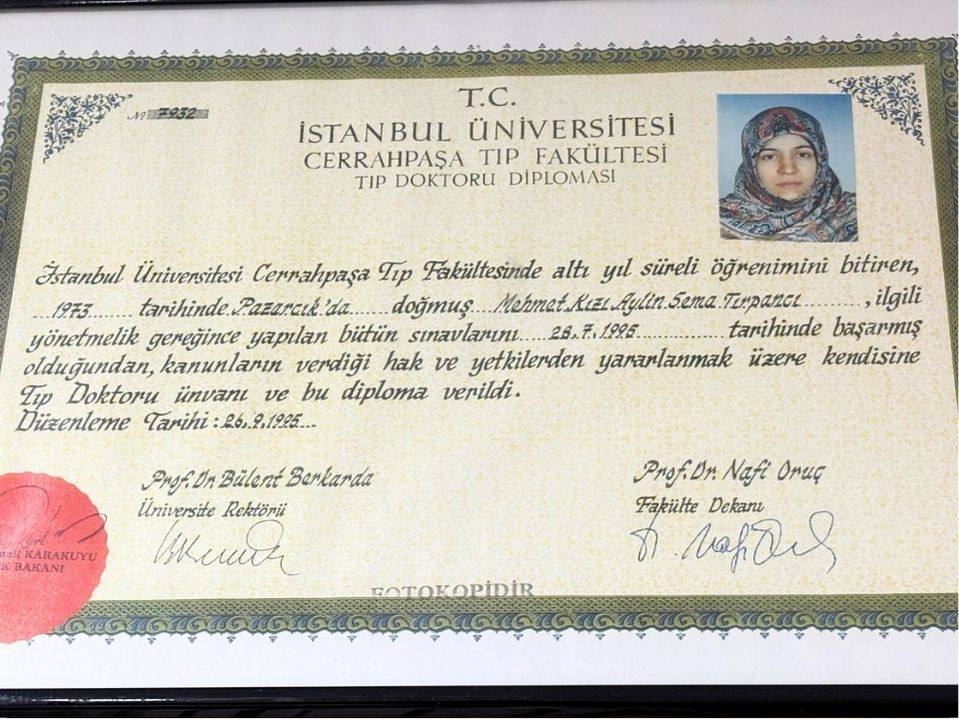 № 7932
T.C.
İSTANBUL ÜNİVERSİTESİ
CERRAHPAŞA TIP FAKÜLTESİ
TIP DOKTORU DİPLOMASI
İstanbul Üniversitesi Cerrahpaşa Tıp Fakültesinde altı yıl süreli öğrenimini bitiren,
1973 tarihinde Pazarcık'da doğmuş Mehmet Kızı Aylin Sema Tırpancı, ilgili
yönetmelik gereğince yapılan bütün sınavlarını 28.7.1995 tarihinde başarmış
olduğundan, kanunların verdiği hak ve yetkilerden yararlanmak üzere kendisine
Tıp Doktoru ünvanı ve bu diploma verildi.
Düzenleme Tarihi: 26.9.1995
Prof. Dr. Bülent Berkarda
Üniversite Rektörü
Prof. Dr. Nafi Oruç
Fakülte Dekanı
KARAKUYU
BAKANI
FOTOKOPİDİR